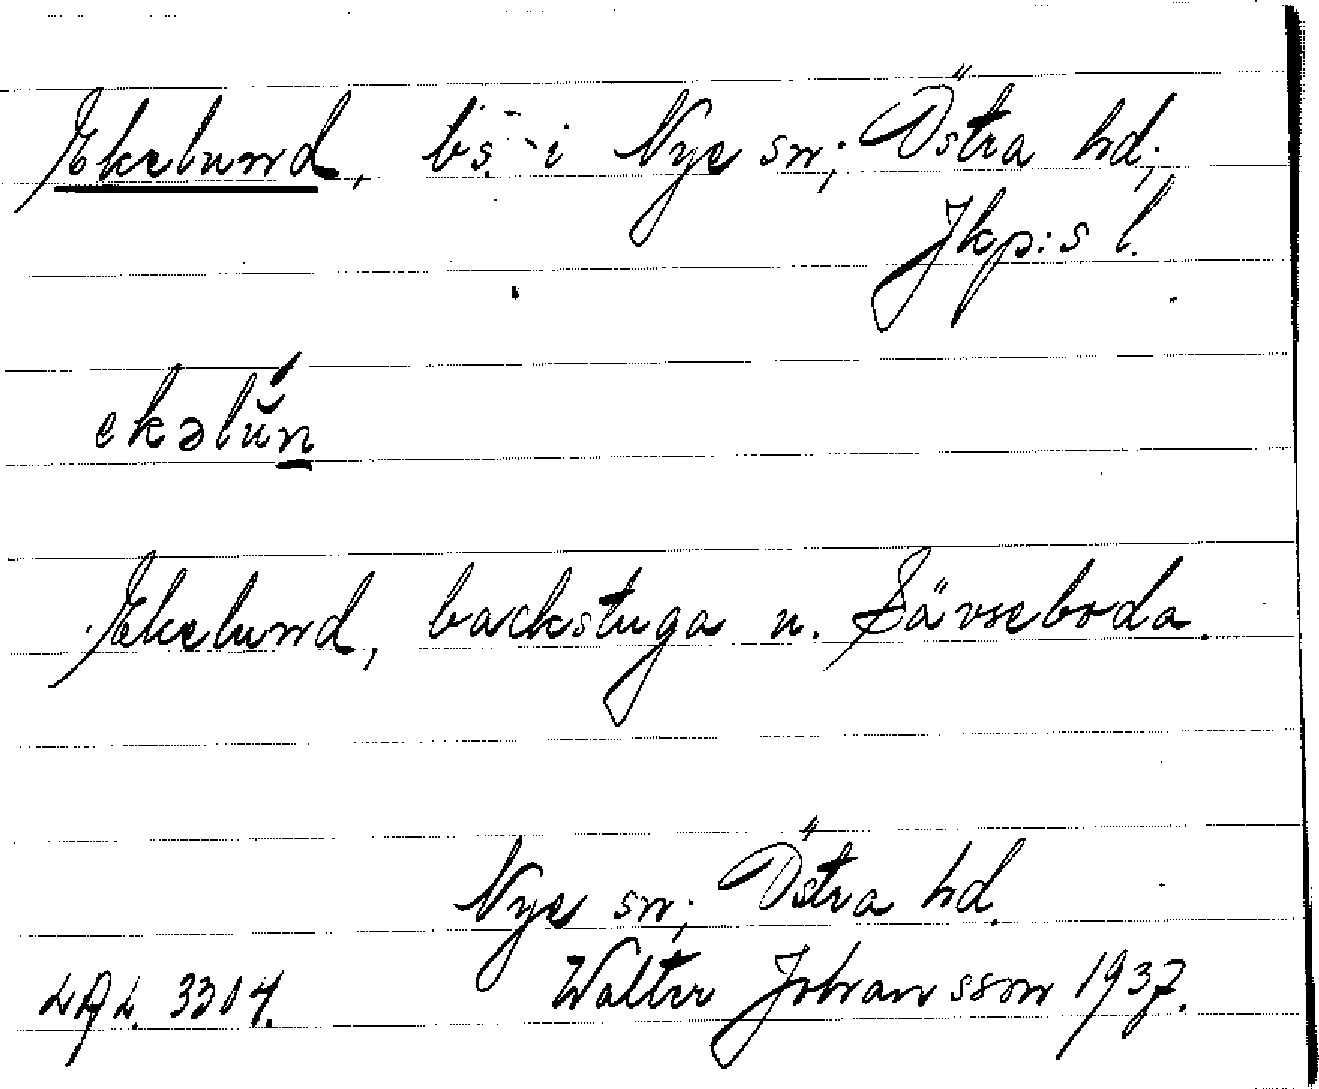 Ekelund, bs. i Nye sn; Östra hd;
Jkp:s l.
ekəlŭ́n
Ekelund, backstuga u. Sävseboda.
Nye sn; Östra hd.
LAL. 3304. Walter Johansson 1937.